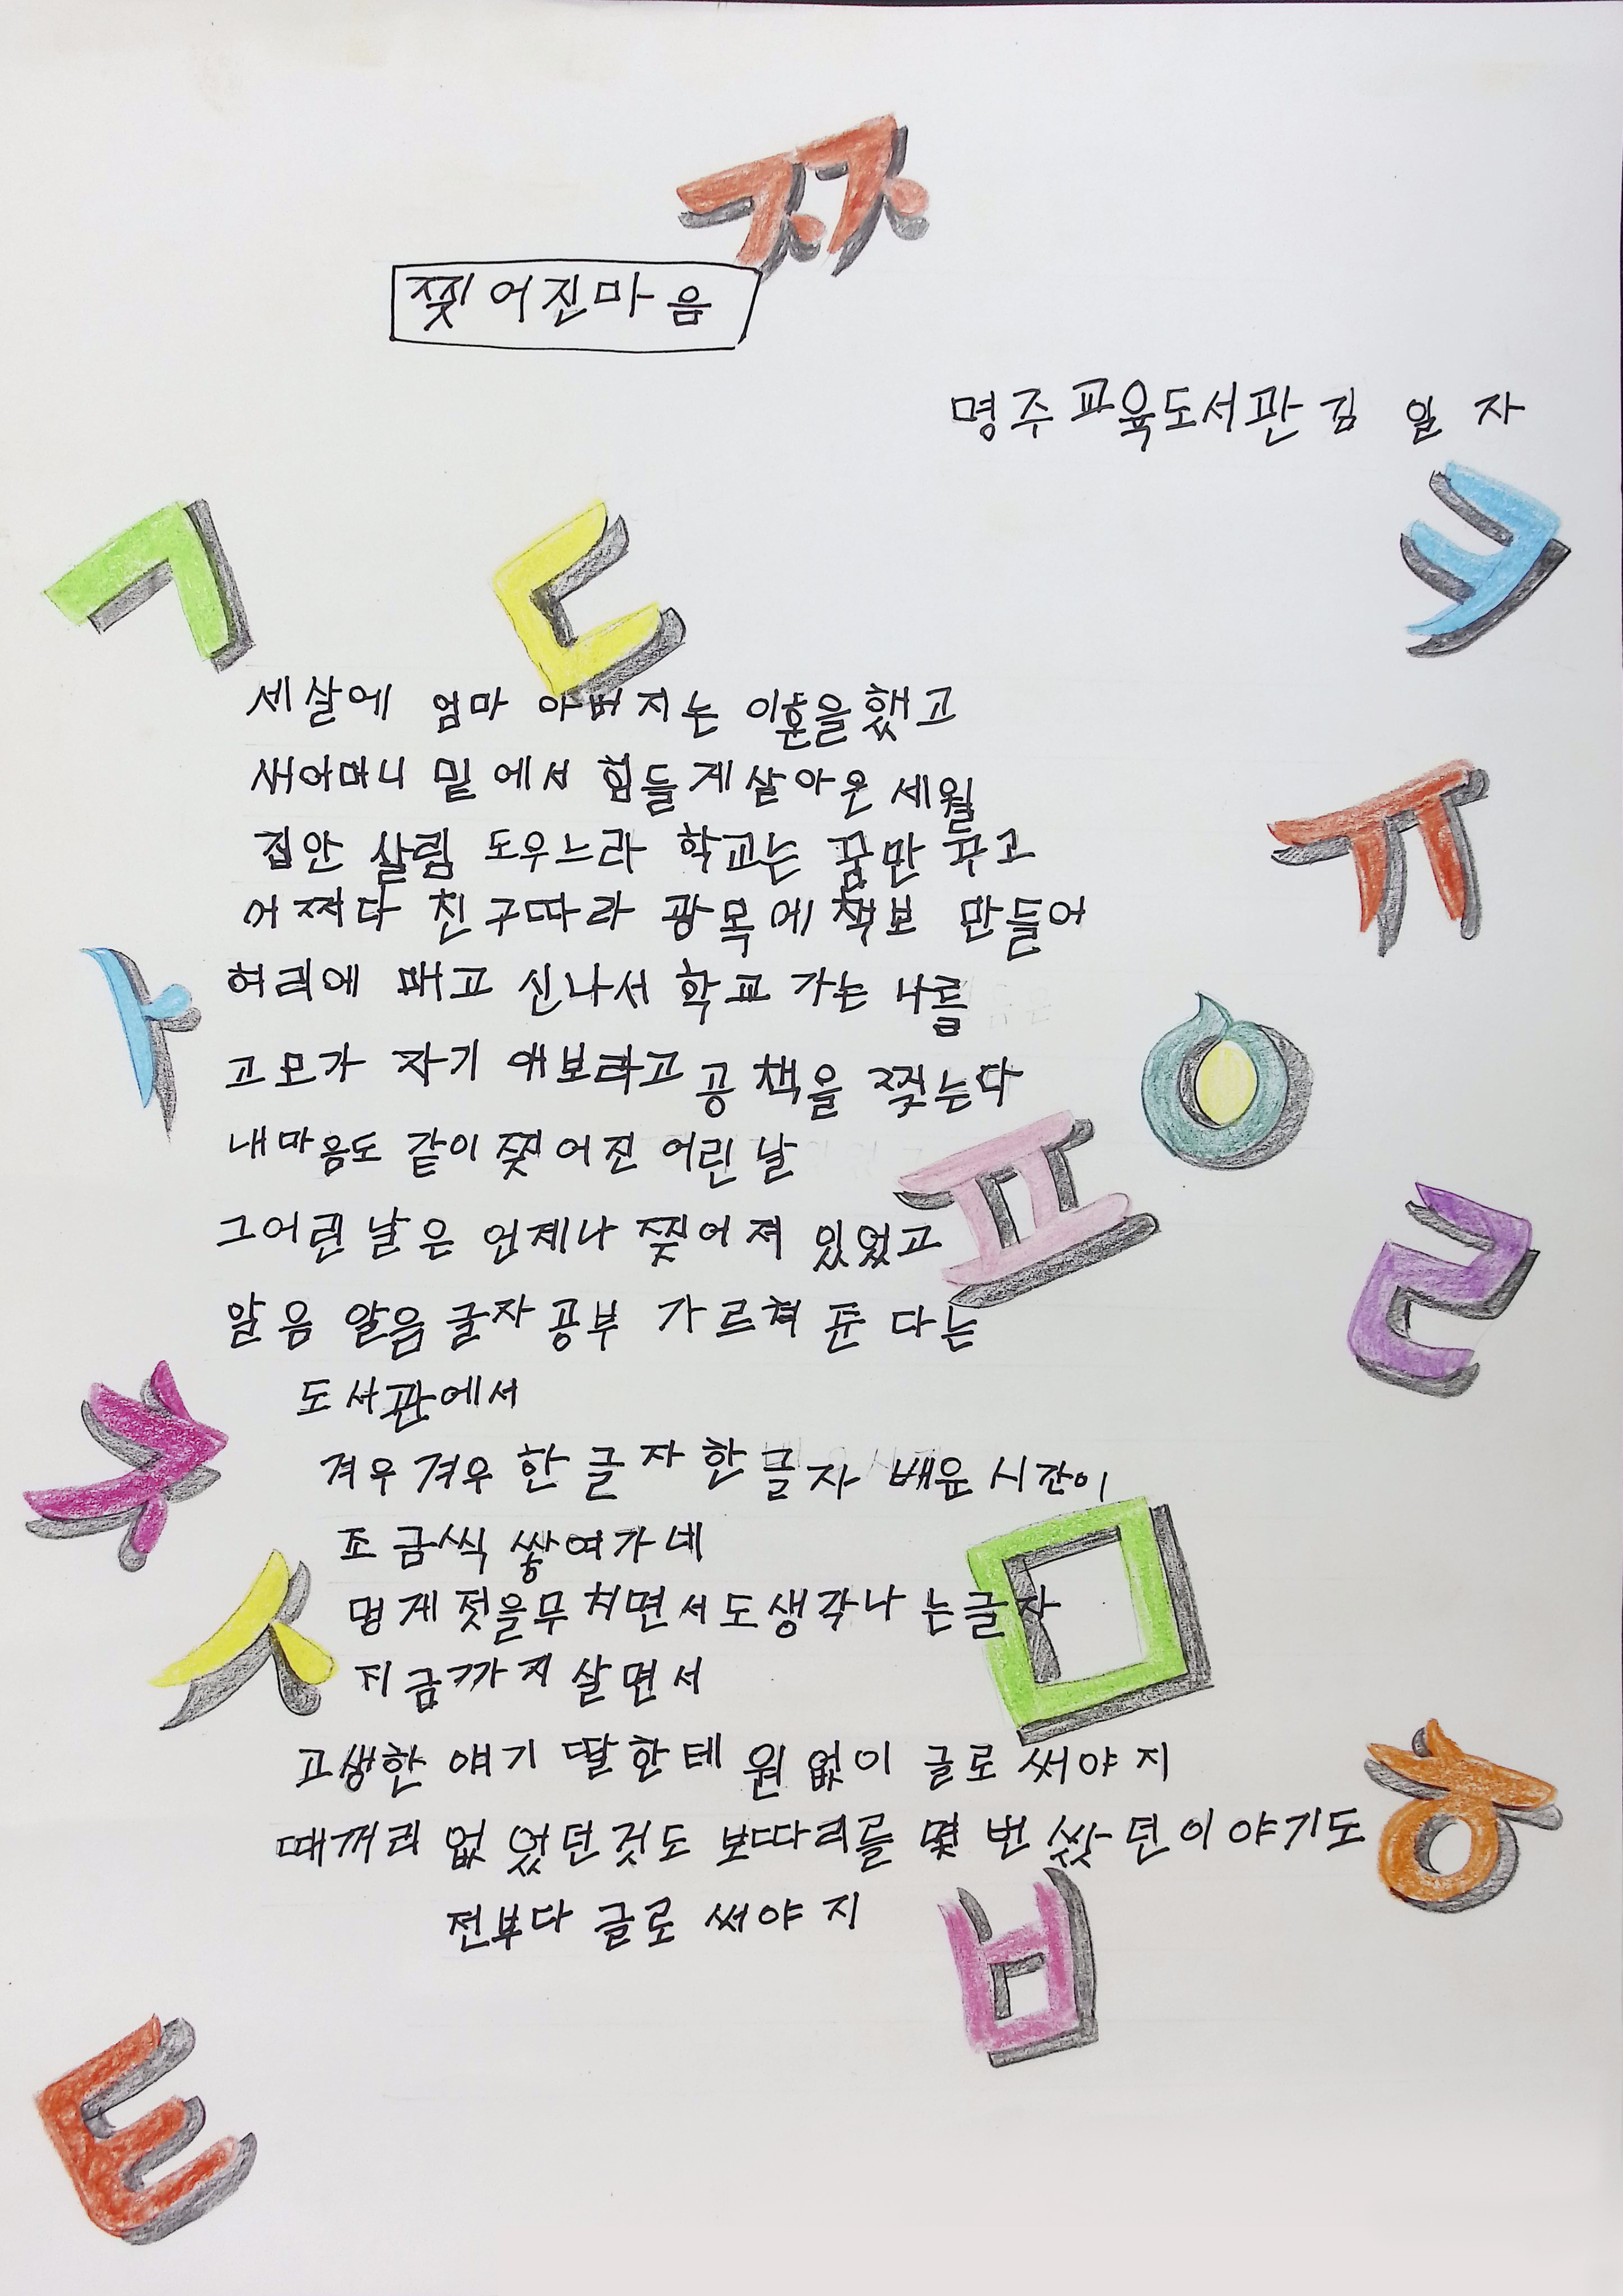 ㅉ
찢어진마음
명주교육도서관 김 일 자
ㄱ
ㄷ
ㅋ
세살에 엄마 아버지는 이혼을했고
새어머니 밑에서 힘들게살아온 세월
ㅠ
집안 살림 도우느라 학교는 꿈만 꾸고
어쩌다 친구따라 광목에 책보 만들어
ㅏ
허리에 매고 신나서 학교 가는 나를
고모가 자기 애보라고 공책을 찢는다
ㅇ
내마음도 같이 찢어진 어린 날
ㅍ
그어린 날은 언제나 찢어져 있었고
ㄹ
알음 알음 글자공부 가르쳐 준 다는
도서관에서
ㅊ
겨우겨우 한 글자 한 글자 배운 시간이
조금씩 쌓여가네
ㅁ
멍게젓을무쳐면서도생각나는글자
ㅅ
지금까지 살면서
고생한 얘기 딸한테 원없이 글로 써야지
ㅎ
때꺼리 없었던것도 보따리를 몇 번 쌌던이야기도
전부다 글로 써야지
ㅂ
ㅌ